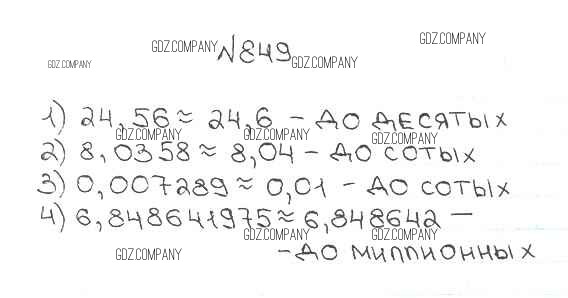 GDZ.COMPANY №849 GDZ.COMPANY
GDZ.COMPANY GDZ.COMPANY
1) 24,56 ≈ 24,6 - ДО ДЕСЯТЫХ
GDZ.COMPANY GDZ.COMPANY GDZ.COMPANY
2) 8,0358 ≈ 8,04 - ДО СОТЫХ
3) 0,007289 ≈ 0,01 - ДО СОТЫХ
4) 6,848641975 ≈ 6,848642 -
GDZ.COMPANY GDZ.COMPANY GDZ.COMPANY
- ДО МИЛЛИОННЫХ